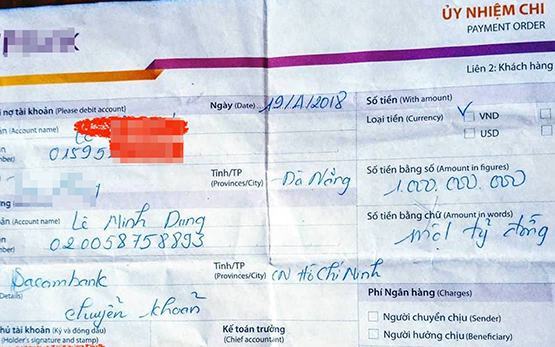 ỦY NHIỆM CHI
PAYMENT ORDER
Liên 2: Khách hàng
i nợ tài khoản (Please debit account)
Ngày (Date)
Số tiền (With amount)
Loại tiền (Currency)
VND
USD
ản (Account name) Lê
01595
Tỉnh/TP
(Provinces/City) Đà Nẵng
Số tiền bằng số (Amount in figures)
1.000.000.000
ản (Account name) Lê Minh Dung
020058758893
Số tiền bằng chữ (Amount in words)
một tỷ đồng
Sacombank
Tỉnh/TP
(Provinces/City) CN Hồ Chí Minh
Details) chuyển khoản
Phí Ngân hàng (Charges)
Người chuyển chịu (Sender)
Người hưởng chịu (Beneficiary)
hủ tài khoản (Ký và đóng dấu)
(Holder's signature and stamp)
Kế toán trưởng
(Chief accountant)